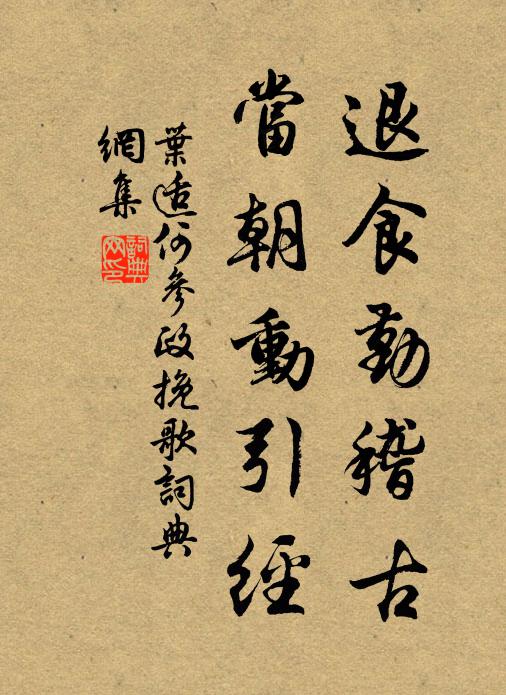 退食勤稽古
當朝動引經
葉适何參政挽歌詞典
網集
詞典網印